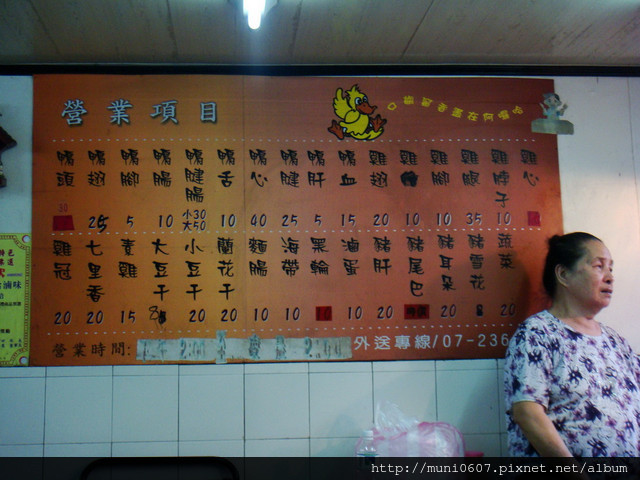 營業項目
鴨頭 鴨翅 鴨腳 鴨腸 鴨腱腸 鴨舌 鴨心 鴨腱 鴨肝 鴨血 雞翅 雞 雞腳 雞 雞脖子 雞心
25 5 10 小30 大50 10 40 25 5 15 20 10 10 35 10
雞冠 七里香 素雞 大豆干 小豆干 蘭花干 麵腸 海帶 黑輪 滷蛋 豬肝 豬尾巴 豬耳朵 豬雪花 蔬菜
20 20 15 20 20 10 10 10 10 20 20 20
營業時間: 外送專線/07-236
滷味
http://muni0607.pixnet.net/album